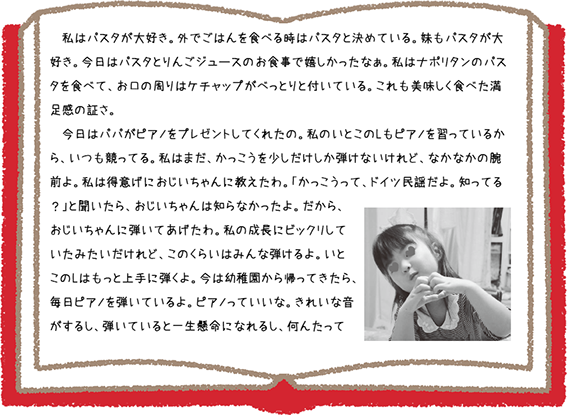 私はパスタが大好き。外でごはんを食べる時はパスタと決めている。妹もパスタが大
好き。今日はパスタとりんごジュースのお食事で嬉しかったなぁ。私はナポリタンのパス
タを食べて、お口の周りはケチャップがべっとりと付いている。これも美味しく食べた満
足感の証さ。
　今日はパパがピアノをプレゼントしてくれたの。私のいとこのLもピアノを習っているか
ら、いつも競ってる。私はまだ、かっこうを少しだけしか弾けないけれど、なかなかの腕
前よ。私は得意げにおじいちゃんに教えたわ。「かっこうって、ドイツ民謡だよ。知ってる
？」と聞いたら、おじいちゃんは知らなかったよ。だから、
おじいちゃんに弾いてあげたわ。私の成長にビックリして
いたみたいだけれど、このくらいはみんな弾けるよ。いと
このLはもっと上手に弾くよ。今は幼稚園から帰ってきたら、
毎日ピアノを弾いているよ。ピアノっていいな。きれいな音
がするし、弾いていると一生懸命になれるし、何んたって